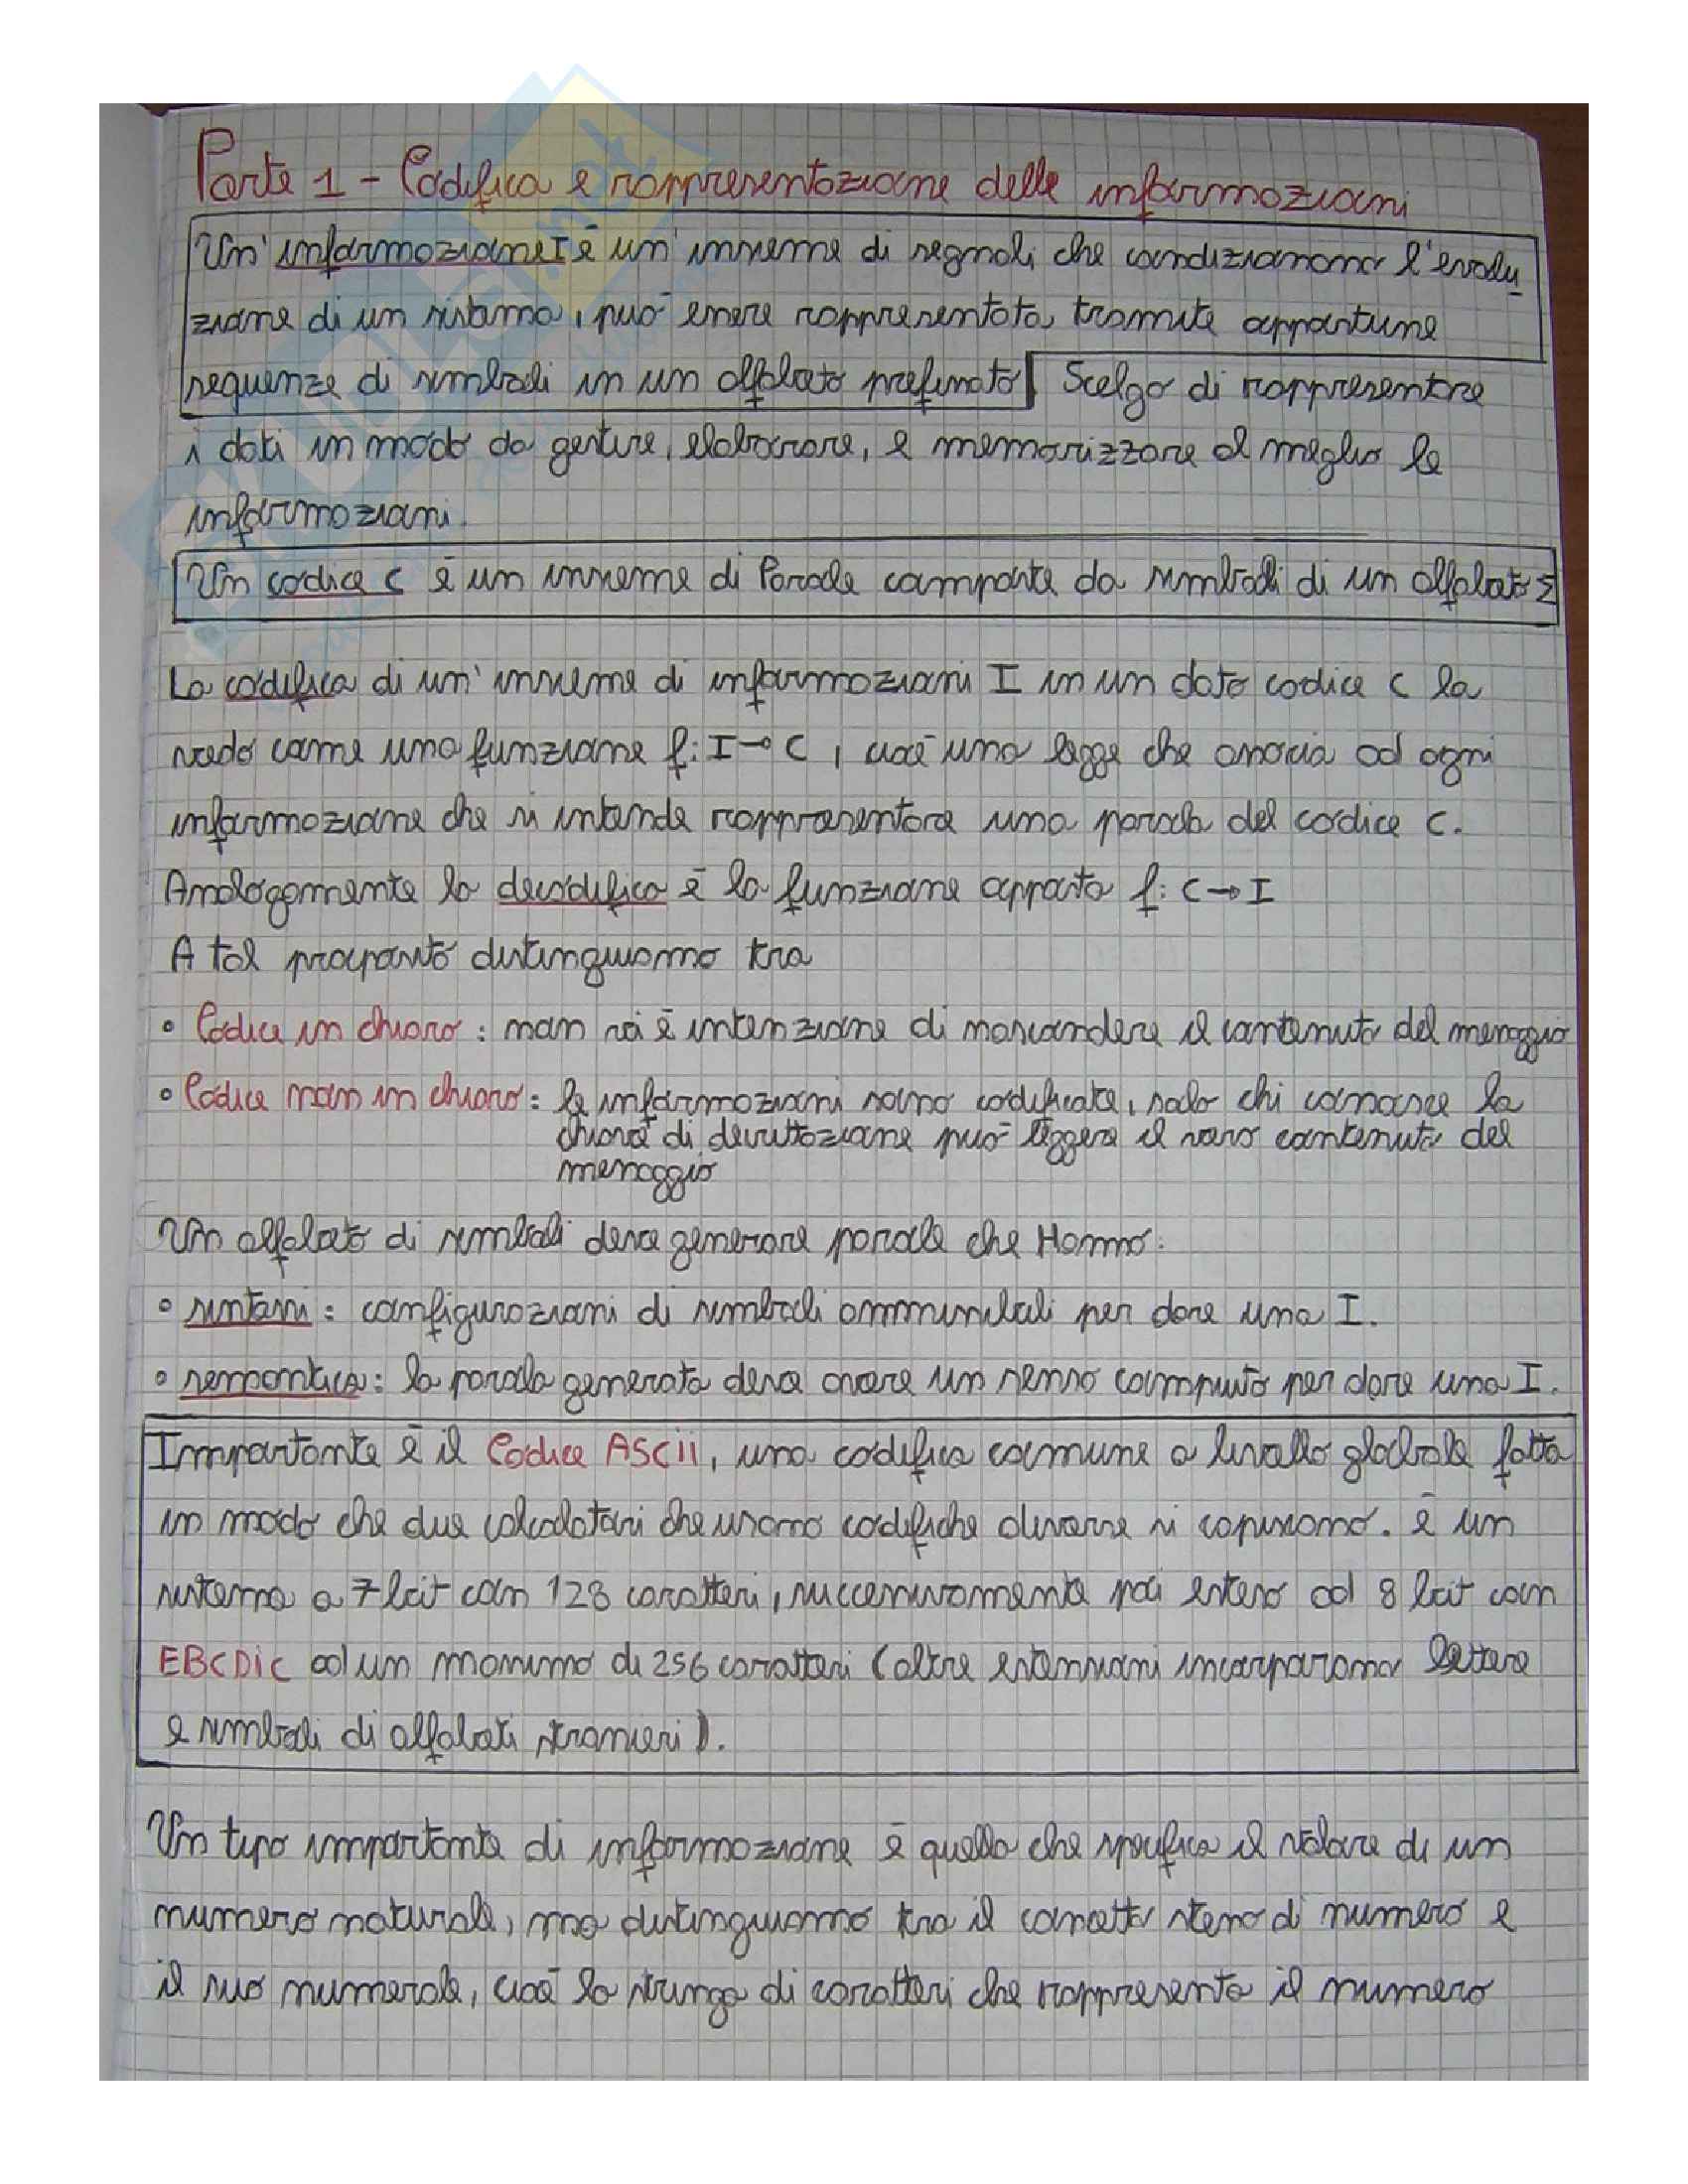 Parte 1 - Codifica e rappresentazione delle informazioni
Un'informazione I è un'insieme di segnali che condizionano l'evolu
zione di un sistema, può essere rappresentata tramite opportune
sequenze di simboli in un alfabeto prefinato Scelgo di rappresentare
i dati in modo da gestire, elaborare, e memorizzare al meglio le
informazioni.
Un codice C è un insieme di Parole composte da simboli di un alfabeto Σ
La codifica di un'insieme di informazioni I in un dato codice C la
vedo come una funzione f: I → C, cioè una legge che associa ad ogni
informazione che si intende rappresentare una parola del codice C.
Analogamente la decodifica è la funzione opposta f: C → I
A tal proposito distinguiamo tra
• Codice in chiaro: non vi è intenzione di nascondere il contenuto del messaggio
• Codice non in chiaro: le informazioni sono codificate, solo chi conosce la
chiave di decrittazione può leggere il vero contenuto del
messaggio
Un alfabeto di simboli deve generare parole che Hanno:
• sintassi: configurazioni di simboli ammissibili per dare una I.
• semantica: la parola generata deve avere un senso compiuto per dare una I.
Importante è il Codice ASCII, una codifica comune a livello globale fatta
in modo che due calcolatori che usano codifiche diverse si capiscano. è un
sistema a 7 bit con 128 caratteri, successivamente poi esteso ad 8 bit con
EBCDIC ad un massimo di 256 caratteri (altre estensioni incorporano lettere
e simboli di alfabeti stranieri).
Un tipo importante di informazione è quella che specifica il valore di un
numero naturale, ma distinguiamo tra il concetto stesso di numero e
il suo numerale, cioè la stringa di caratteri che rappresenta il numero